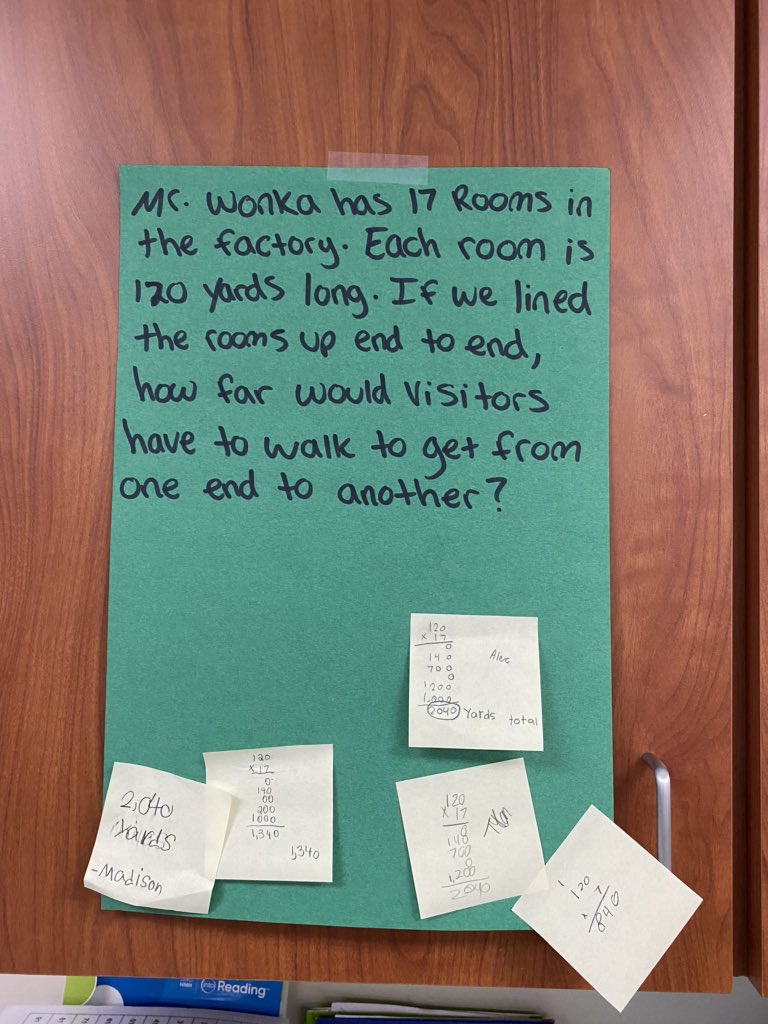 Mr. Wonka has 17 Rooms in
the factory. Each room is
120 yards long. If we lined
the rooms up end to end,
how far would visitors
have to walk to get from
one end to another?
120
x 17
0
140
700
0
1200
2040 yards total
Alec
2,040
yards
-Madison
120
x 17
0
140
00
200
1000
1,340
1,340
120
x 17
0
140
700
0
1,200
2040
1
120
x 7
840
HMH into Reading